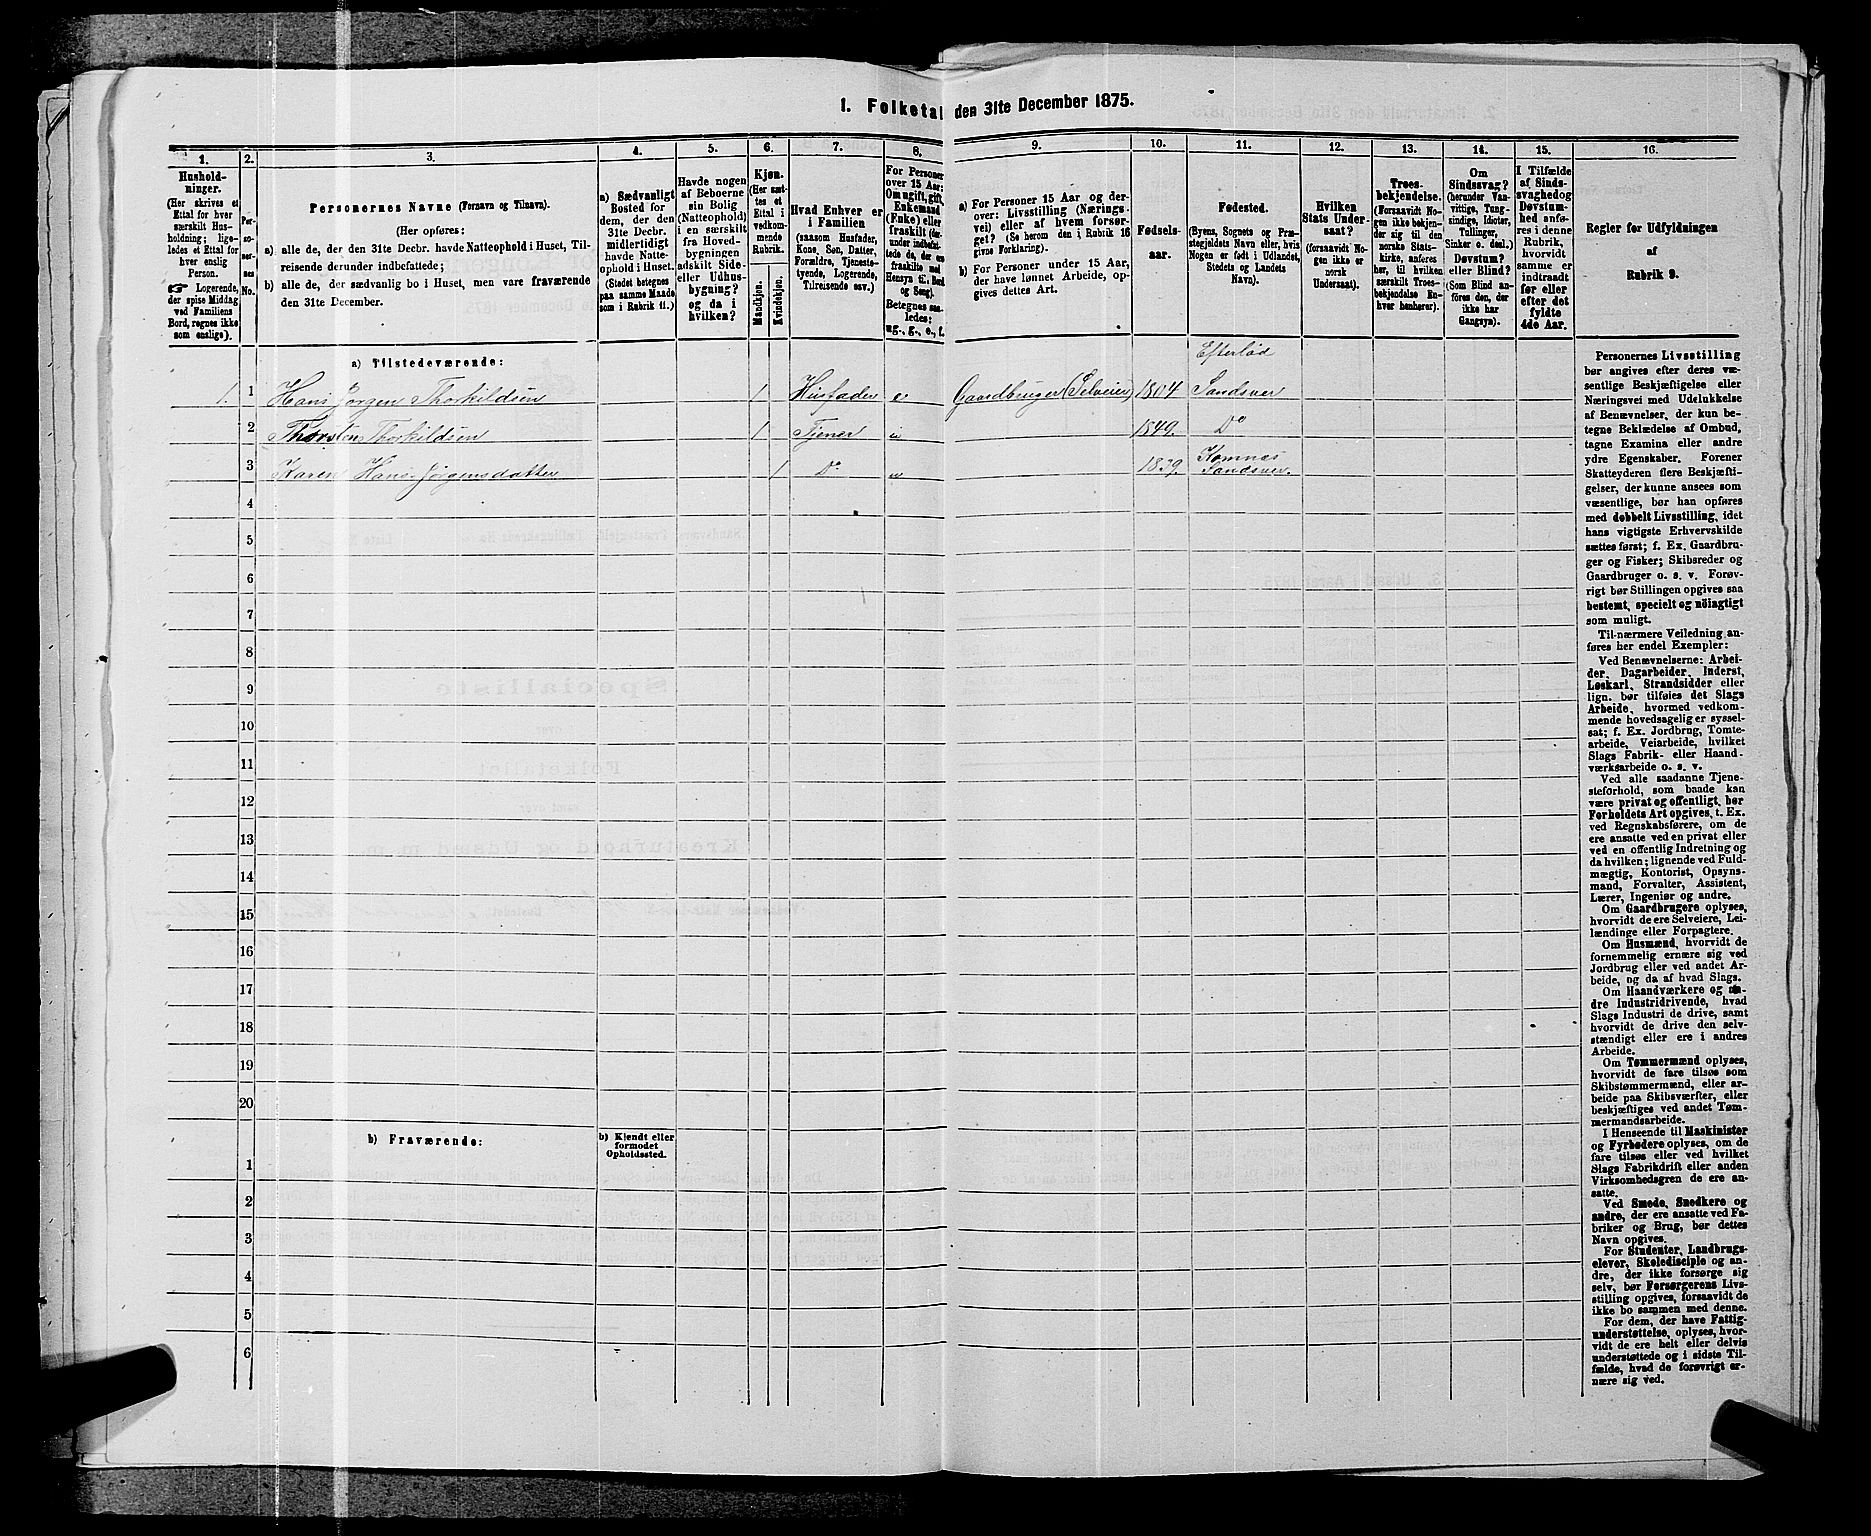 1. Folketal den 31te December 1875.
1. 2. 3. 4. 5. 6. 7. 8. 9. 10. 11. 12. 13. 14. 15. 16.
Hushold-
ninger.
(Her skrives et
Ettal for hver
særskilt Hus-
holdning; lige-
ledes et Ettal
for hver enslig
Person.
☞ Logerende,
der spise Middag
ved Familiens
Bord, regnes ikke
som enslige).
Per-
so-
ner-
nes
No.
Personernes Navne (Fornavn og Tilnavn).
(Her opføres:
a) alle de, der den 31te Decbr. havde Natteophold i Huset, Til-
reisende derunder indbefattede;
b) alle de, der sædvanlig bo i Huset, men vare fraværende
den 31te December.
a) Sædvanligt
Bosted for
dem, der den
31te Decbr.
midlertidigt
havde Natte-
ophold i Huset.
(Stedet betegnes
paa samme Maade
som i Rubrik 11.)
Havde nogen
af Beboerne
sin Bolig
(Natteophold)
i en særskilt
fra Hoved-
bygningen
adskilt Side-
eller Udhus-
bygning?
og da i
hvilken?
Kjøn.
(Her sæt-
tes et
Ettal i
vedkom-
mende
Rubrik.
Mandkjøn.
Kvindekjøn.
Hvad Enhver er
i Familien
(saasom Husfader,
Kone, Søn, Datter,
Forældre, Tjeneste-
tyende, Logerende,
Tilreisende osv.)
For Personer
over 15 Aar:
Om ugift, gift,
Enkemand
(Enke) eller
fraskilt (der-
under indbefat-
tede de, der ere
fraskilte med
Hensyn til Bord
og Seng).
Betegnes saa-
ledes:
ug., g., e., f.
a) For Personer 15 Aar og der-
over: Livsstilling (Nærings-
vei) eller af hvem forsør-
get? (Se herom den i Rubrik 16
givne Forklaring).
b) For Personer under 15 Aar,
der have lønnet Arbeide, op-
gives dettes Art.
Fødsels-
aar.
Fødested.
(Byens, Sognets og Præ-
stegjeldets Navn eller, hvis
Nogen er født i Udlandet,
Stedets og Landets
Navn).
Hvilken
Stats Under-
saat?
(forsaavidt No-
gen ikke er
norsk
Undersaat).
Troes-
bekjendelse.
(Forsaavidt No-
gen ikke bekjen-
der sig til den
norske Stats-
kirke, anføres
her, til hvilken
særskilt Troes-
bekjendelse En-
hver henhører).
Om
Sindssvag?
(herunder Van-
vittige, Tung-
sindige, Idioter,
Tullinger,
Sinker o. desl.)
Døvstum?
eller Blind?
(Som Blind an-
føres den, der
ikke har
Gangsyn).
I Tilfælde
af Sinds-
svaghed og
Døvstum-
hed anfø-
res i denne
Rubrik,
hvorvidt
samme er
indtraadt
før eller
efter det
fyldte
4de Aar.
Regler for Udfyldningen
af
Rubrik 9.
a) Tilstedeværende:
Eftelød
1. 1 Hans Jørgen Thorkildsen 1 Husfader e Gaardbruger (Selveier) 1804 Sandsver
2 Thorsten Thorkildsen 1 Tjener 1849. Do
3 Karen Hans-Jørgensdatter 1 Do 1839. Komnes Sandsver.
4
5
6
7
8
9
10
11
12
13
14
15
16
17
18
19
20
b) Fraværende:
b) Kjendt eller
formodet
Opholdssted.
1
2
3
4
5
6
Personernes Livsstilling
bør angives efter deres væ-
sentlige Beskjæftigelse eller
Næringsvei med Udelukkelse
af Benævnelser, der kun be-
tegne Beklædelse af Ombud,
tagne Examina eller andre
ydre Egenskaber. Forener
Skatteyderen flere Beskjæfti-
gelser, der kunne ansees som
væsentlige, bør han opføres
med dobbelt Livsstilling, idet
hans vigtigste Erhvervskilde
sættes først; f. Ex. Gaardbru-
ger og Fisker; Skibsreder og
Gaardbruger o. s. v. Forøv-
rigt bør Stillingen opgives saa
bestemt, specielt og nöiagtigt
som muligt.
Til nærmere Veiledning an-
føres her endel Exempler:
Ved Benævnelserne: Arbei-
der, Dagarbeider, Inderst,
Løskarl, Strandsidder eller
lign. bør tilføies det Slags
Arbeide, hvormed vedkom-
mende hovedsagelig er syssel-
sat; f. Ex. Jordbrug, Tomte-
arbeide, Veiarbeide, hvilket
Slags Fabrik- eller Haand-
værksarbeide o. s. v.
Ved alle saadanne Tjene-
steforhold, som baade kan
være privat og offentligt, bør
Forholdets Art opgives, f. Ex.
ved Regnskabsførere, om de
ere ansatte ved en privat eller
ved en offentlig Indretning og
da hvilken; lignende ved Fuld-
mægtig, Kontorist, Opsyns-
mand, Forvalter, Assistent,
Lærer, Ingeniør og andre.
Om Gaardbrugere oplyses,
hvorvidt de ere Selveiere, Lei-
lændinge eller Forpagtere.
Om Husmænd, hvorvidt de
fornemmelig ernære sig ved
Jordbrug eller ved andet Ar-
beide, og da af hvad Slags.
Om Haandværkere og an-
dre Industridrivende, hvad
Slags Industri de drive, samt
hvorvidt de drive den selv-
stændigt eller ere i andres
Arbeide.
Om Tømmermænd oplyses,
hvorvidt de fare tilsøs som
Skibstømmermænd, eller ar-
beide paa Skibsværfter, eller
beskjæftiges ved andet Tøm-
mermandsarbeide.
I Henseende til Maskinister
og Fyrbødere oplyses, om de
fare tilsøs eller ved hvilket
Slags Fabrikdrift eller anden
Virksomhedsgren de ere an-
satte.
Ved Smede, Snedkere og
andre, der ere ansatte ved Fa-
briker og Brug, bør dettes
Navn opgives.
For Studenter, Landbrugs-
elever, Skoledisciple og an-
dre, der ikke forsørge sig
selv, bør Forsørgerens Livs-
stilling opgives, forsaavidt de
ikke bo sammen med denne.
For dem, der have Fattig-
understøttelse, oplyses, hvor-
vidt de ere helt eller delvis
understøttede og i sidste Til-
fælde, hvad de forøvrigt er-
nære sig ved.